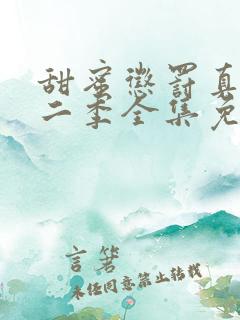 甜蜜惩罚真
二季全集免
言箬
未经同意禁止转载